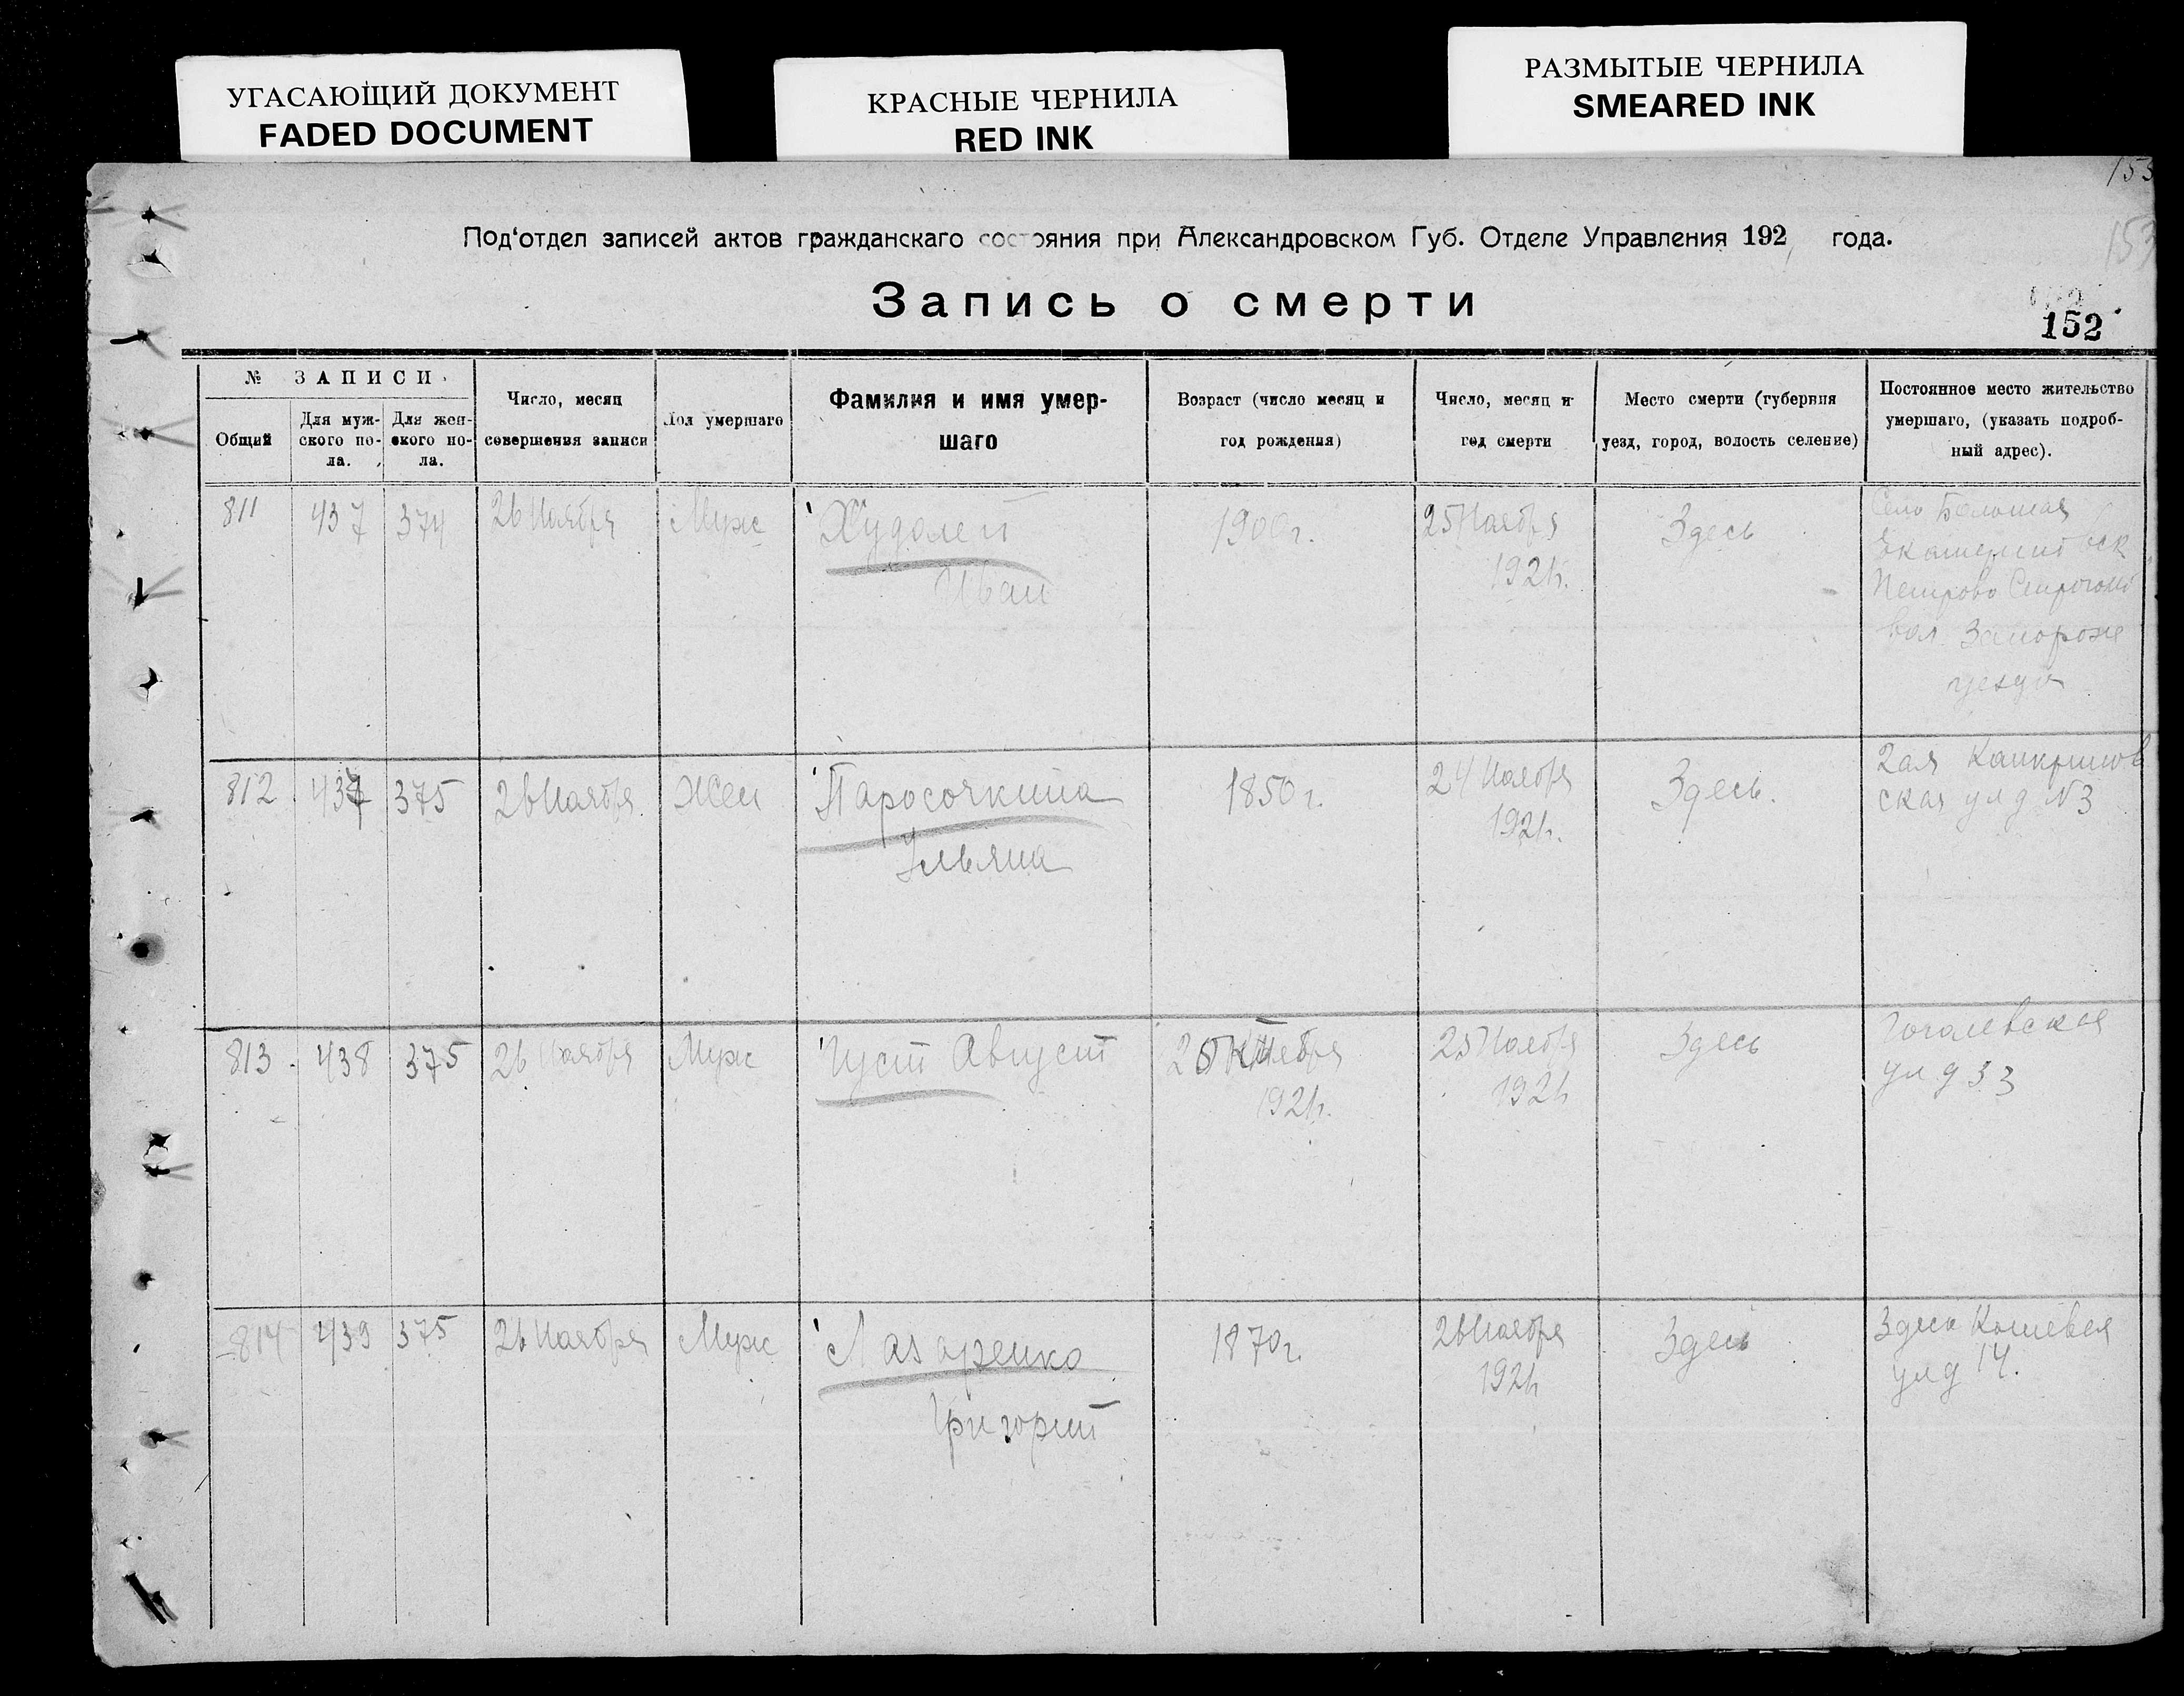 УГАСАЮЩИЙ ДОКУМЕНТ
FADED DOCUMENT
КРАСНЫЕ ЧЕРНИЛА
RED INK
РАЗМЫТЫЕ ЧЕРНИЛА
SMEARED INK
153
153
Под'отдел записей актов гражданскаго состояния при Александровском Губ. Отделе Управления 192 года.
Запись о смерти
152
№ ЗАПИСИ
Общий
Для муж-
ского по-
ла.
Для жен-
ского по-
ла.
Число, месяц
совершения записи
Пол умершаго
Фамилия и имя умер-
шаго
Возраст (число месяц и
год рождения)
Число, месяц и
год смерти
Место смерти (губерния
уезд, город, волость селение)
Постоянное место жительство
умершаго, (указать подроб-
ный адрес).
811 437 374 26 Ноября Муж Худолей
Иван
1900г.
25 Ноября
1921г.
Здесь
Село
вол. Запорож
уезда
812 437 375 26 Ноября Жен Паросочкина
Ульяна
1850г.
24 Ноября
1921г.
Здесь.
2ая
ская ул д N3
813 438 375 26 Ноября Муж Густ Август
Октября
1921г.
25 Ноября
1921г
Здесь
Гоголевская
ул д 33
814 439 375 26 Ноября Муж Лазаренко
Григорий
1870г.
26 Ноября
1921г
Здесь
Здесь
ул д 14.